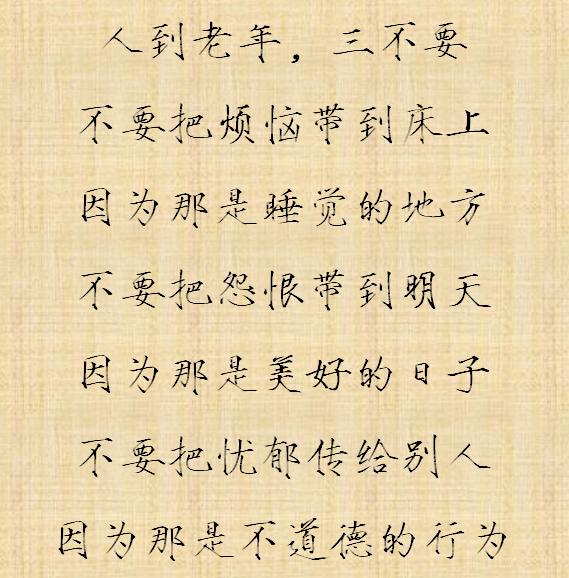 人到老年，三不要
不要把烦恼带到床上
因为那是睡觉的地方
不要把怨恨带到明天
因为那是美好的日子
不要把忧郁传给别人
因为那是不道德的行为